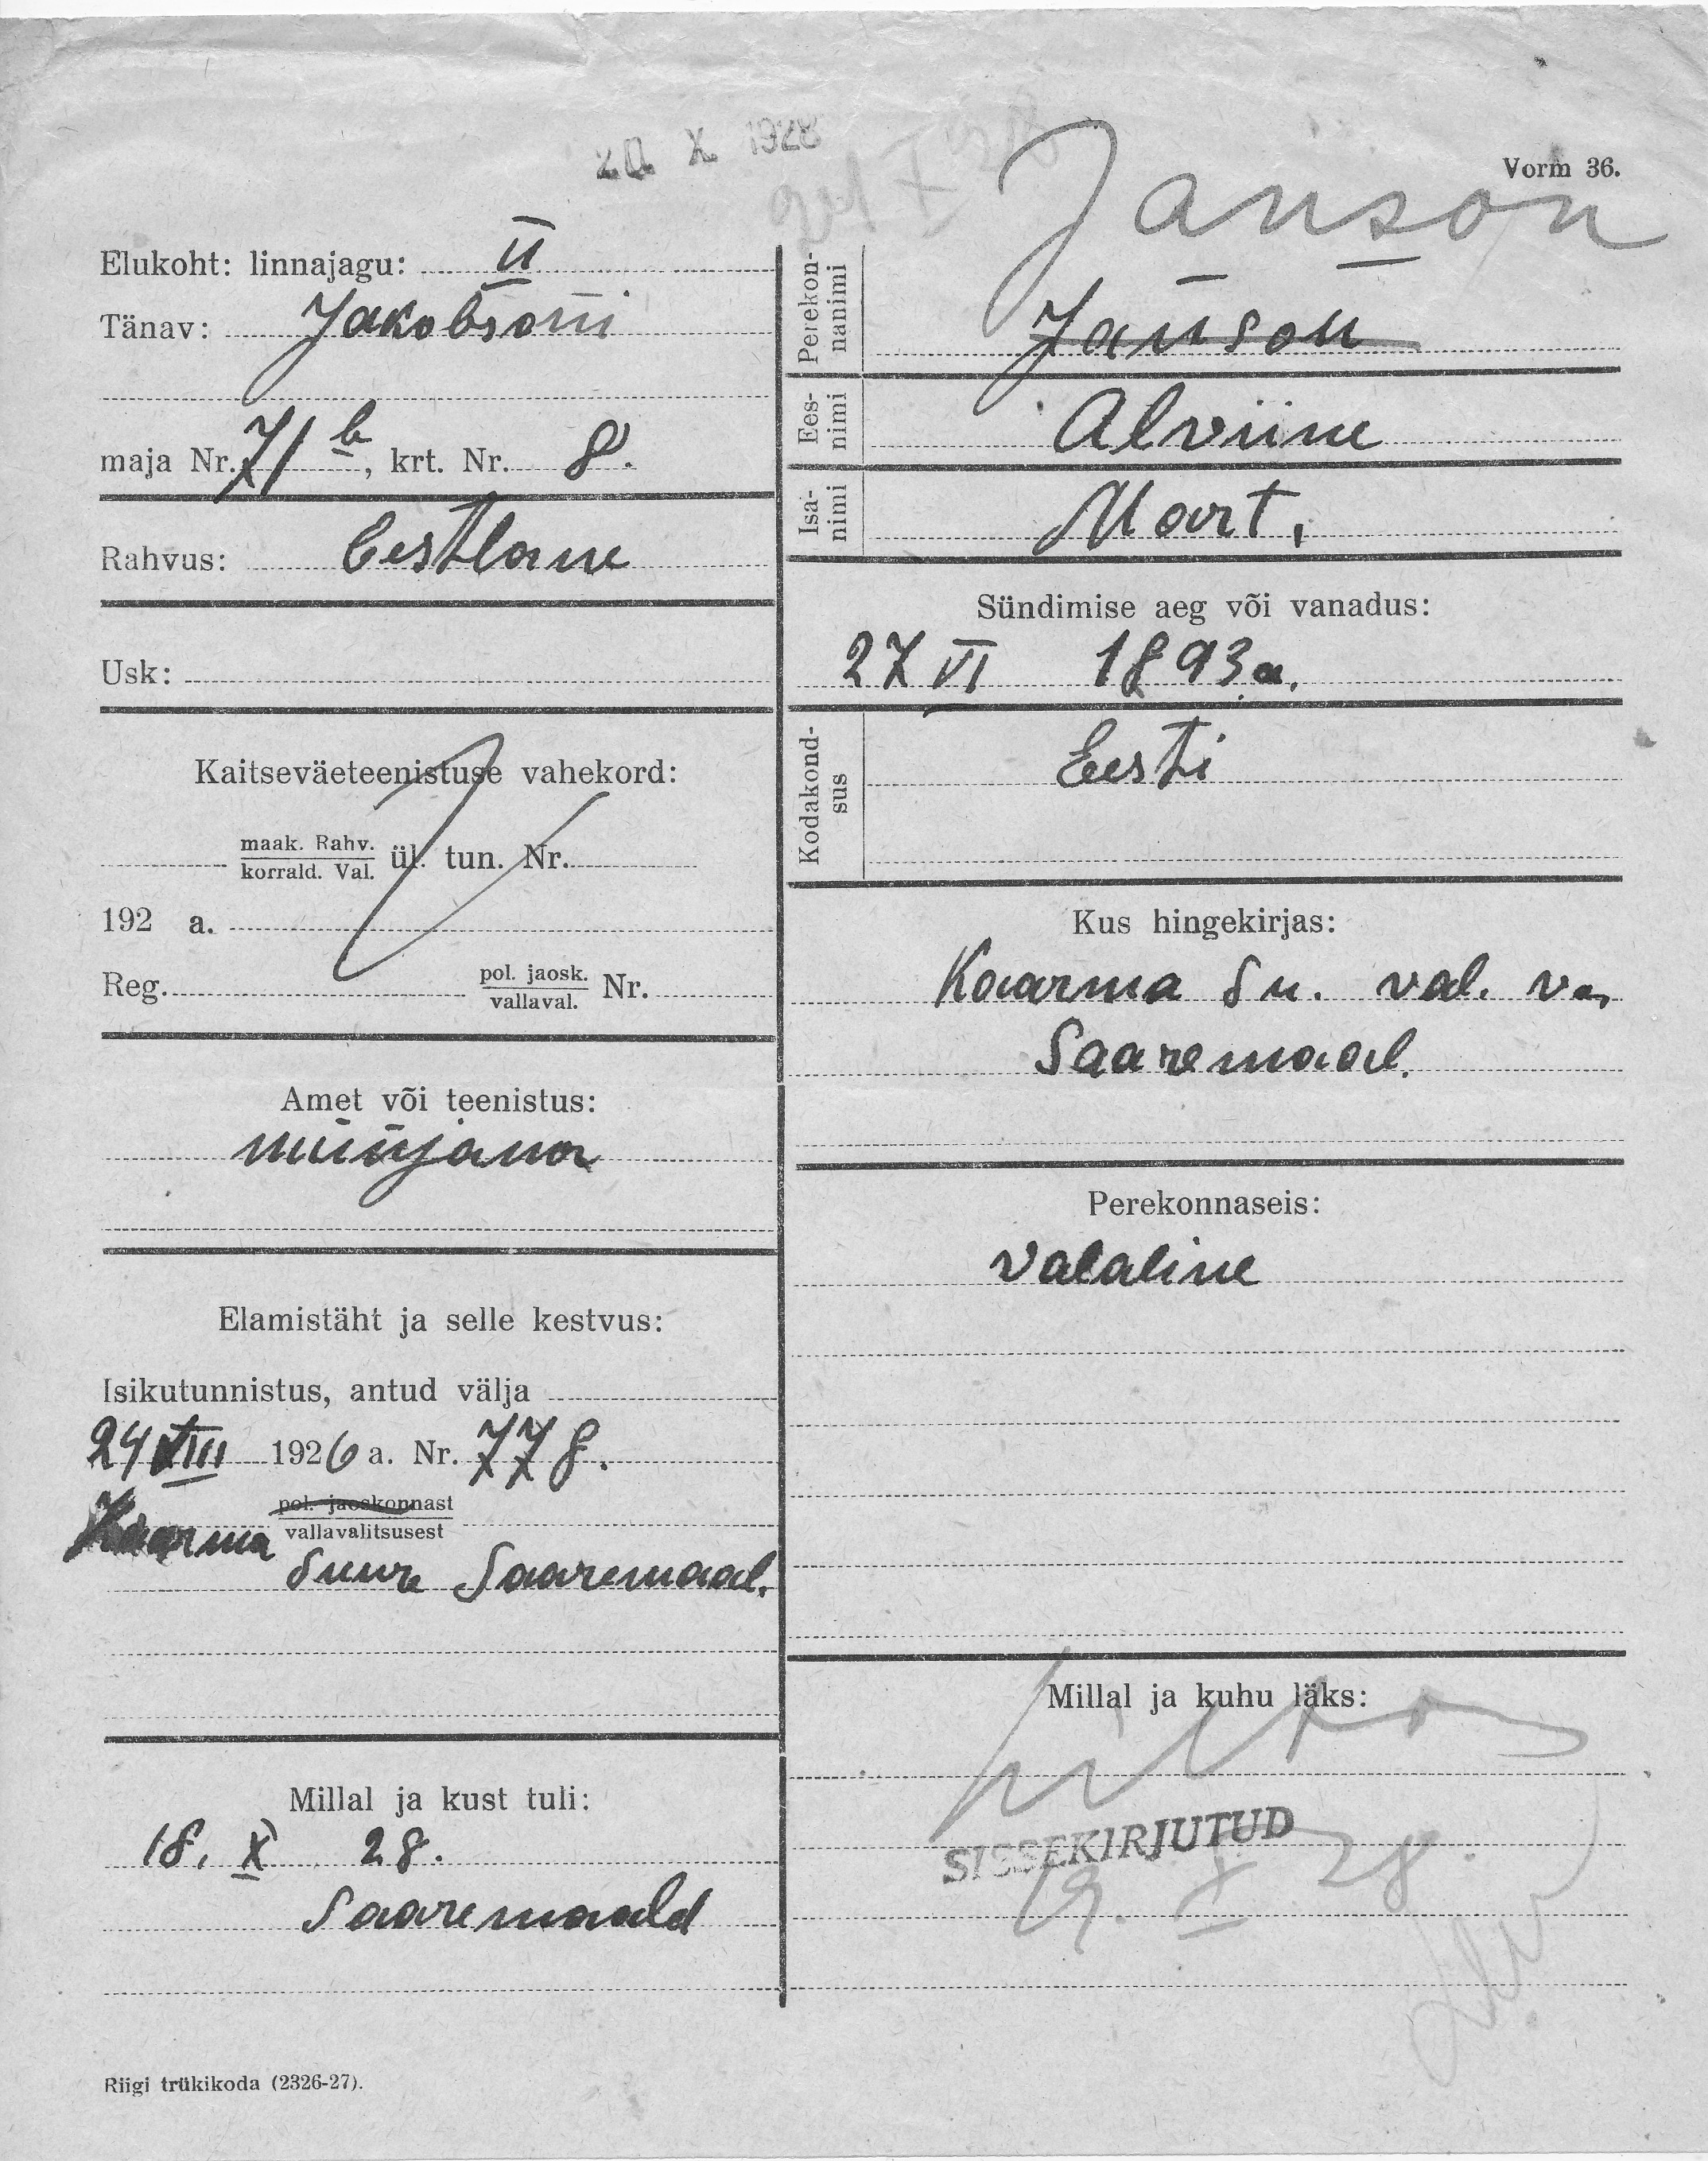 20. X. 1928
Vorm 36.
Janson
Elukoht: linnajagu: II
Tänav: Jakobsoni
maja Nr. 71 b, krt. Nr. 8.
Rahvus: Eestlane
Usk:
Kaitseväeteenistuse vahekord:
maak. Rahv.
korrald. Val. ül. tun. Nr.
192 a.
Reg. pol. jaosk.
vallaval. Nr.
Amet või teenistus:
müüjanna
Elamistäht ja selle kestvus:
Isikutunnistus, antud välja
24 VIII 1926 a. Nr. 778.
pol. jaoskonnast
Kaarma vallavalitsusest
Suure Saaremaal.
Millal ja kust tuli:
18. X 28.
Saaremaalt
Riigi trükikoda (2326-27).
Perekon-
nanimi
Janson
Ees-
nimi Alviine
Isa-
nimi Mart,
Sündimise aeg või vanadus:
27 VI 1893 a.
Kodakond-
sus Eesti
Kus hingekirjas:
Kaarma Su. val. v.
Saaremaal.
Perekonnaseis:
Valaline
Millal ja kuhu läks:
SISSEKIRJUTUD
19. X 28.